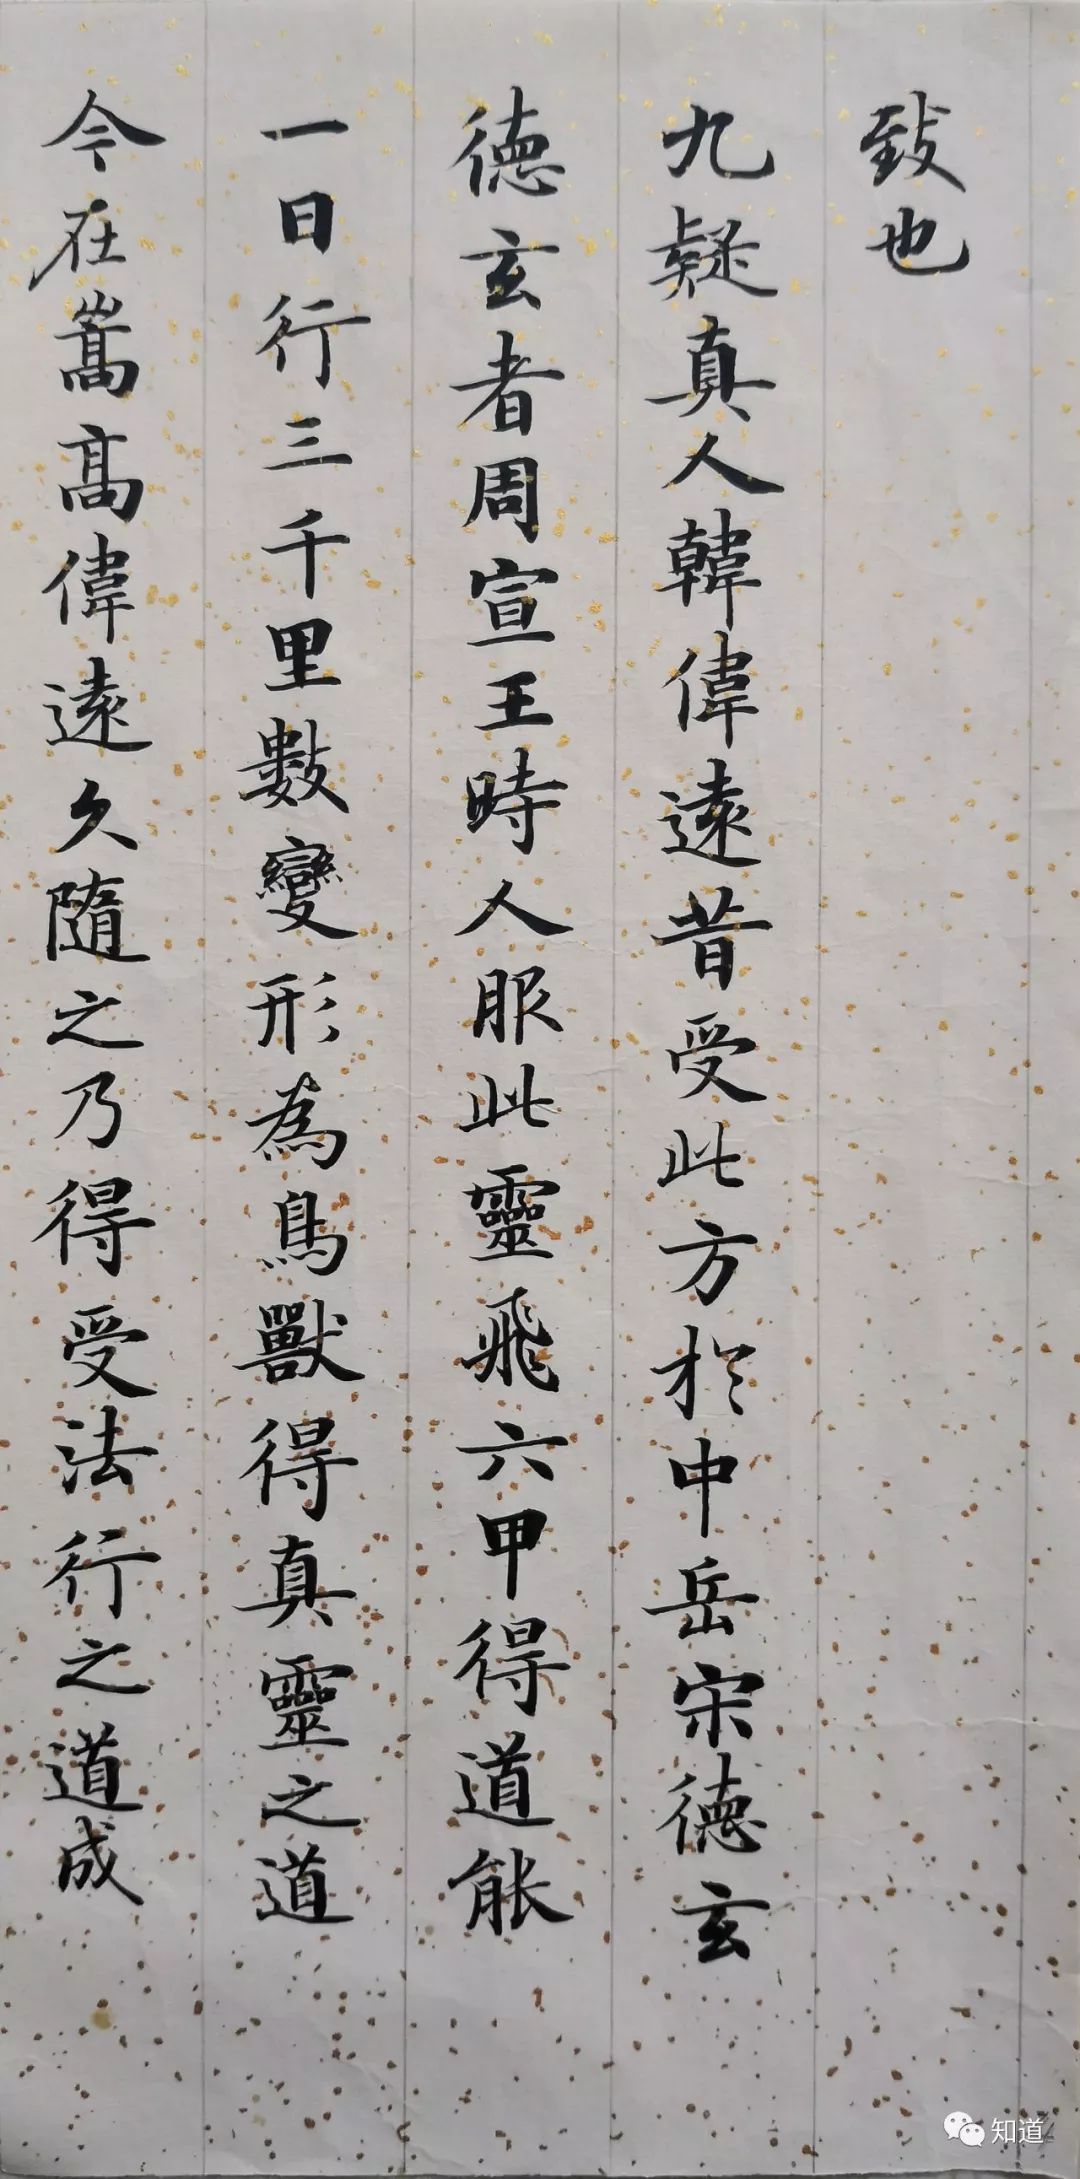 致也
九疑真人韓偉遠昔受此方於中岳宋德玄
德玄者周宣王時人服此靈飛六甲得道能
一日行三千里數變形為鳥獸得真靈之道
今在嵩高偉遠久隨之乃得受法行之道成
知道